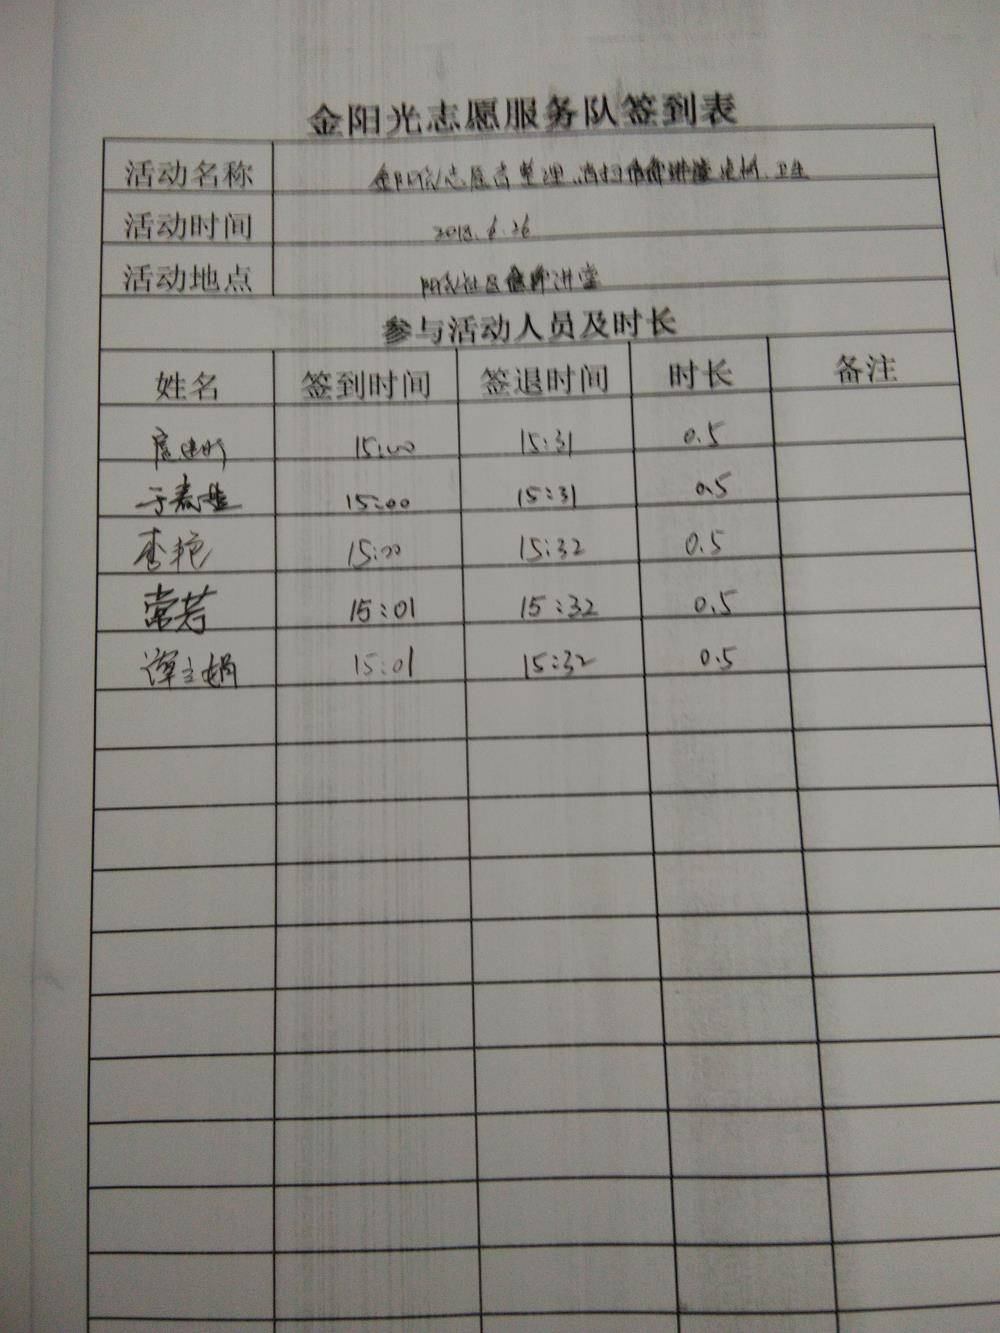 金阳光志愿服务队签到表
活动名称 金阳光志愿者整理、清扫 卫生
活动时间 2018.6.26
活动地点 阳光社区 讲堂
参与活动人员及时长
姓名 签到时间 签退时间 时长 备注
15:00 15:31 0.5
于 15:00 15:31 0.5
李艳 15:00 15:32 0.5
常芳 15:01 15:32 0.5
谭立娟 15:01 15:32 0.5